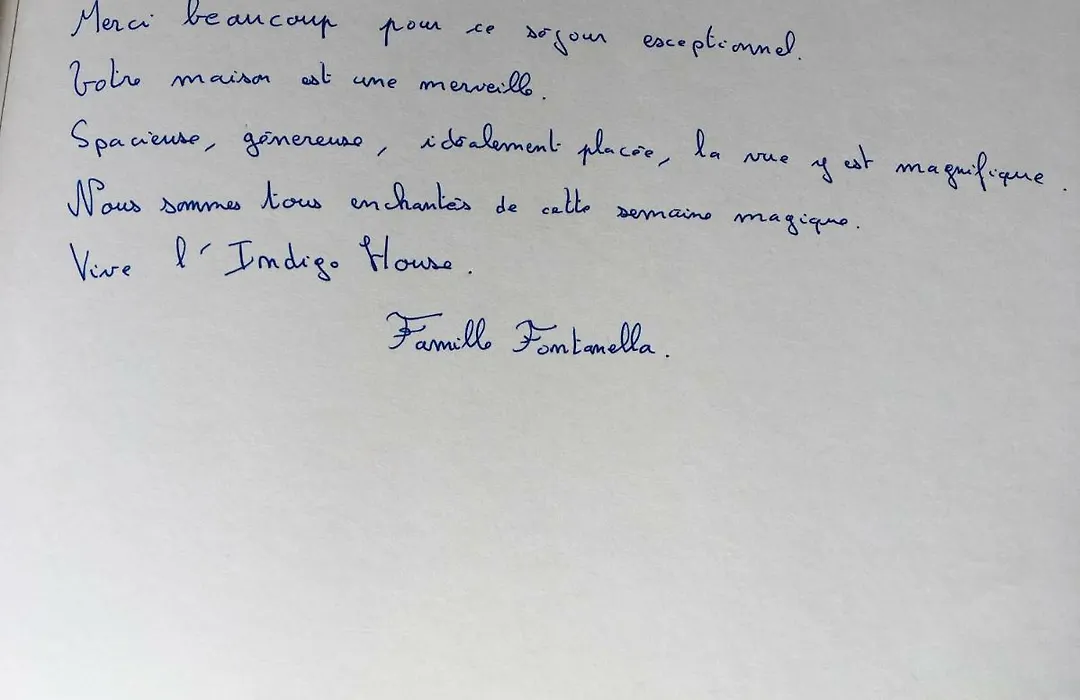 Merci beaucoup pour ce séjour esceptionnel.
Votre maison est une merveille.
Spacieuse, génereuse, idéalement placée, la vue y est magnifique.
Nous sommes tous enchantés de cette semaine magique.
Vive l'Indigo House.
Famille Fontanella.